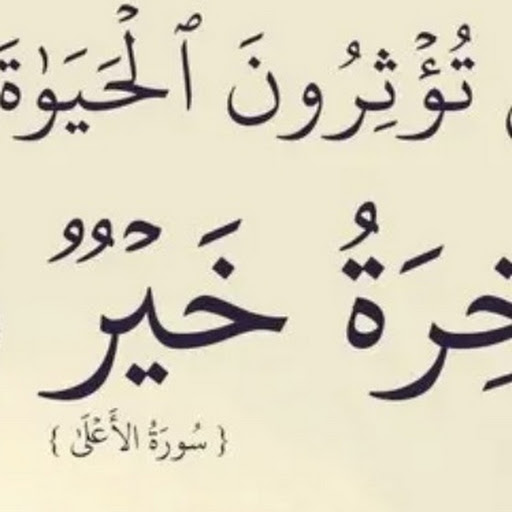 تُؤْثِرُونَ ٱلْحَيَوٰةَ
خِرَةُ خَيْرٌ
{ سُورَةُ الأَعْلَىٰ }